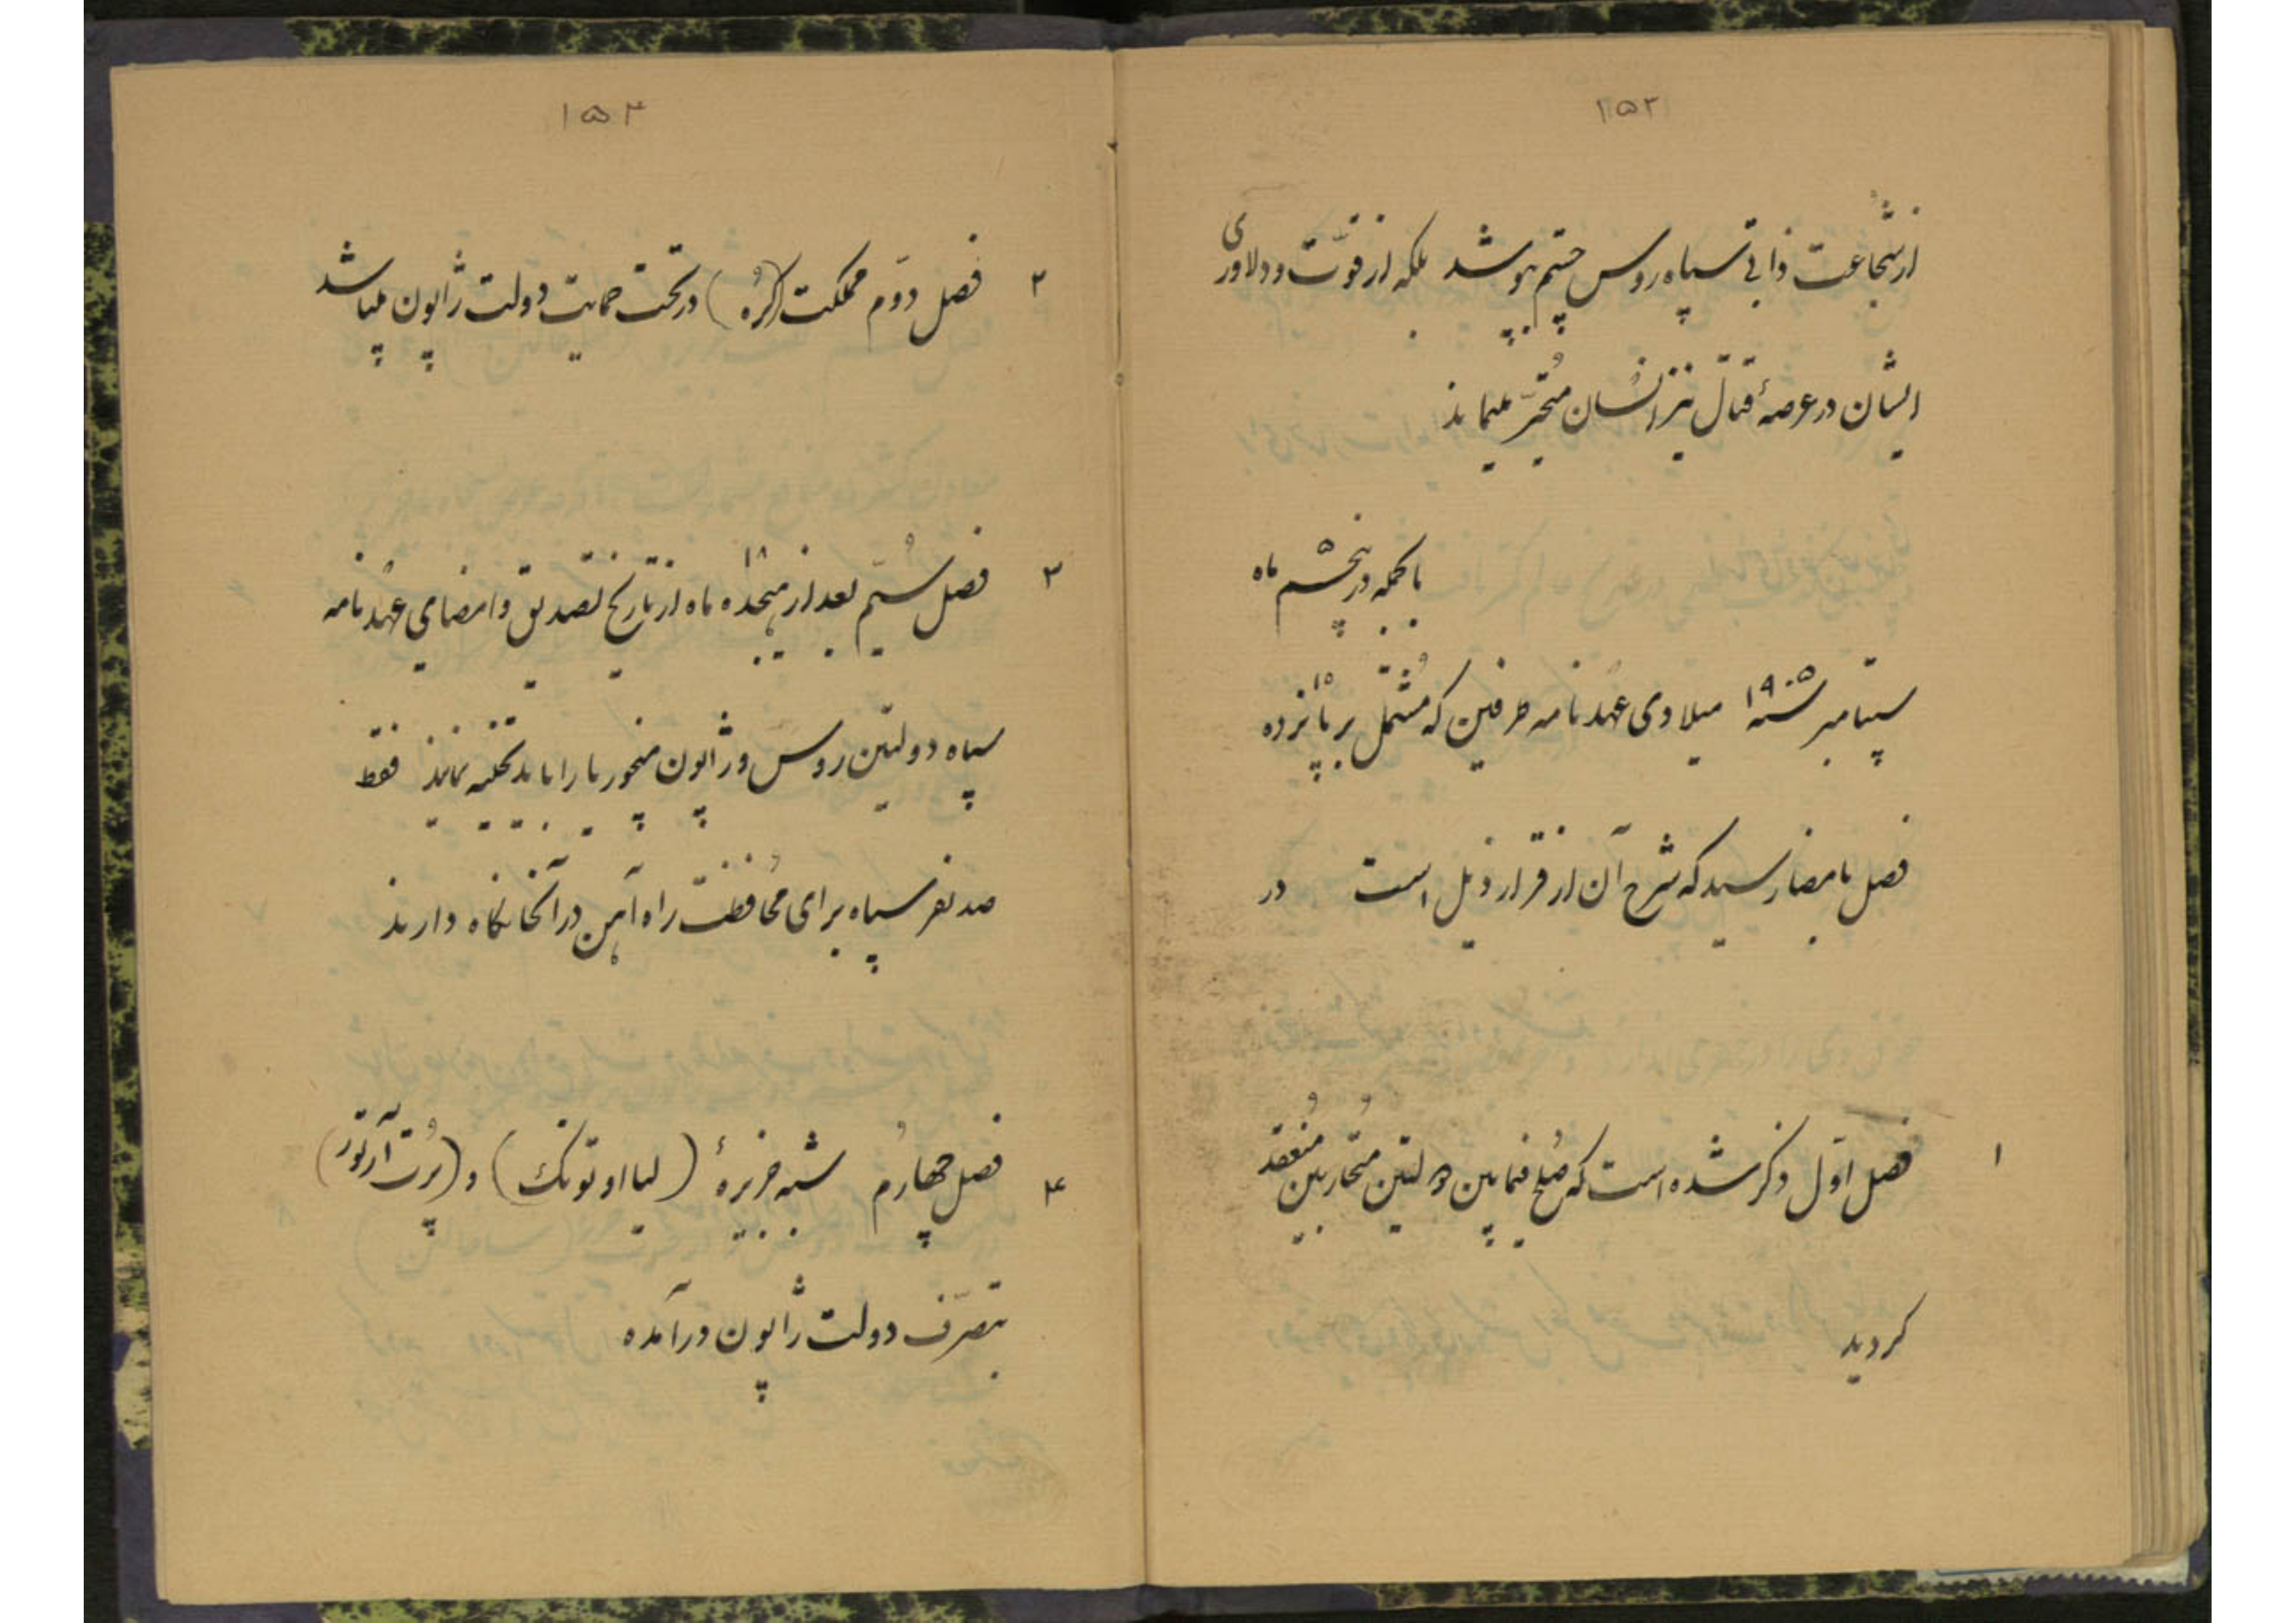 ۱۵۳
از شجاعت ذاتی سپاه روس چشم بپوشد بلکه از قوّت و دلاوری
ایشان در عرصهٔ قتال نیز انسان متحیّر میماند
بالجمله در پنجم ۵ ماه
سپتامبر سنه ۱۹۰۵ میلادی عهدنامه طرفین که مُشتمل بر پانزده ۱۵
فصل بامضا رسید که شرح آن از قرار ذیل است در
۱ فصل اوّل ذکر شده است که صُلح فیمابین دولتین مُتحاربین مُنعقد
گردید
۱۵۴
۲ فصل دوّم مملکت (کُره) در تحت حمایت دولت ژاپون میباشد
۳ فصل سُیّم بعد از هیجده ۱۸ ماه از تاریخ تصدیق و امضای عهدنامه
سپاه دولتین روس و ژاپون منچوریا را باید تخلیه نمایند فقط
صد نفر سپاه برای مُحافظت راه آهن در آنجا نگاه دارند
۴ فصل چهارُم شبه جزیرهٔ (لیااوتونک) و (پُرت آرتور)
بتصرّف دولت ژاپون درآمده